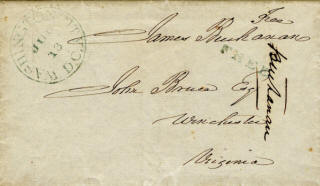 WASHINGTON CITY D.C.
13
Free
James Buchanan
FREE
Buchanan
John Bruce Esq
Winchester
Virginia